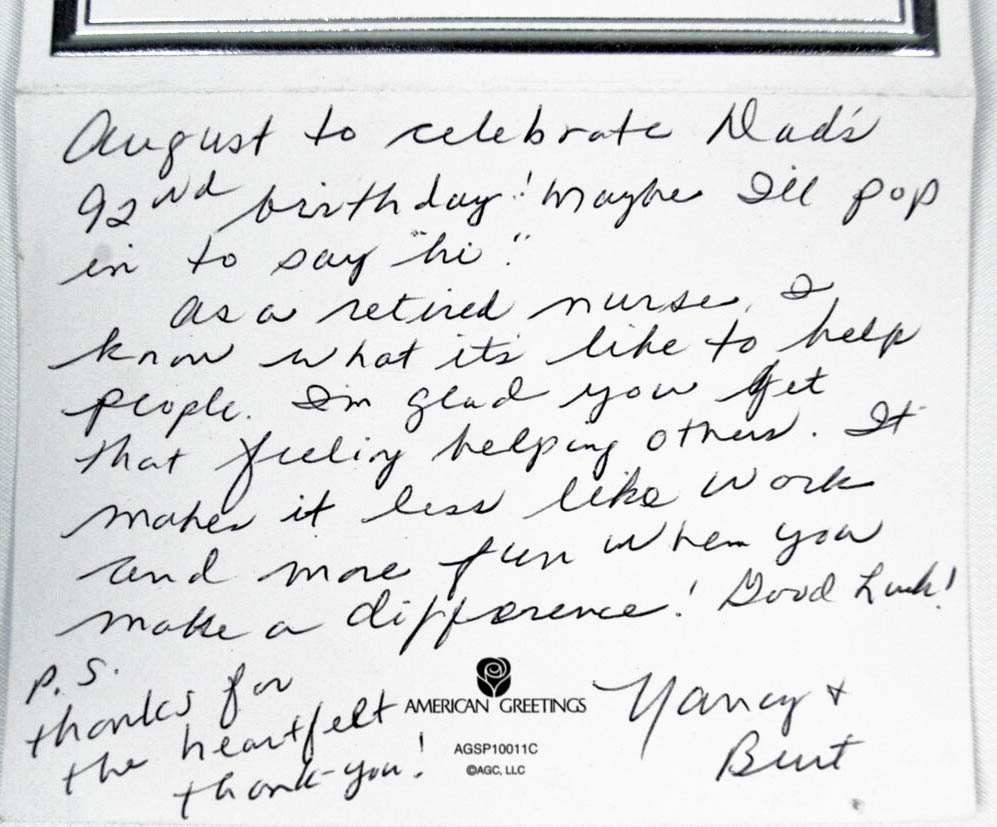 August to celebrate Dad's
92nd birthday! Maybe I'll pop
in to say "hi".
As a retired nurse, I
know what it's like to help
people. I'm glad you get
that feeling helping others. It
makes it less like work
and more fun when you
make a difference! Good Luck!
Nancy +
Burt
P.S.
thanks for
the heartfelt
thank-you!
AMERICAN GREETINGS
AGSP10011C
©AGC, LLC